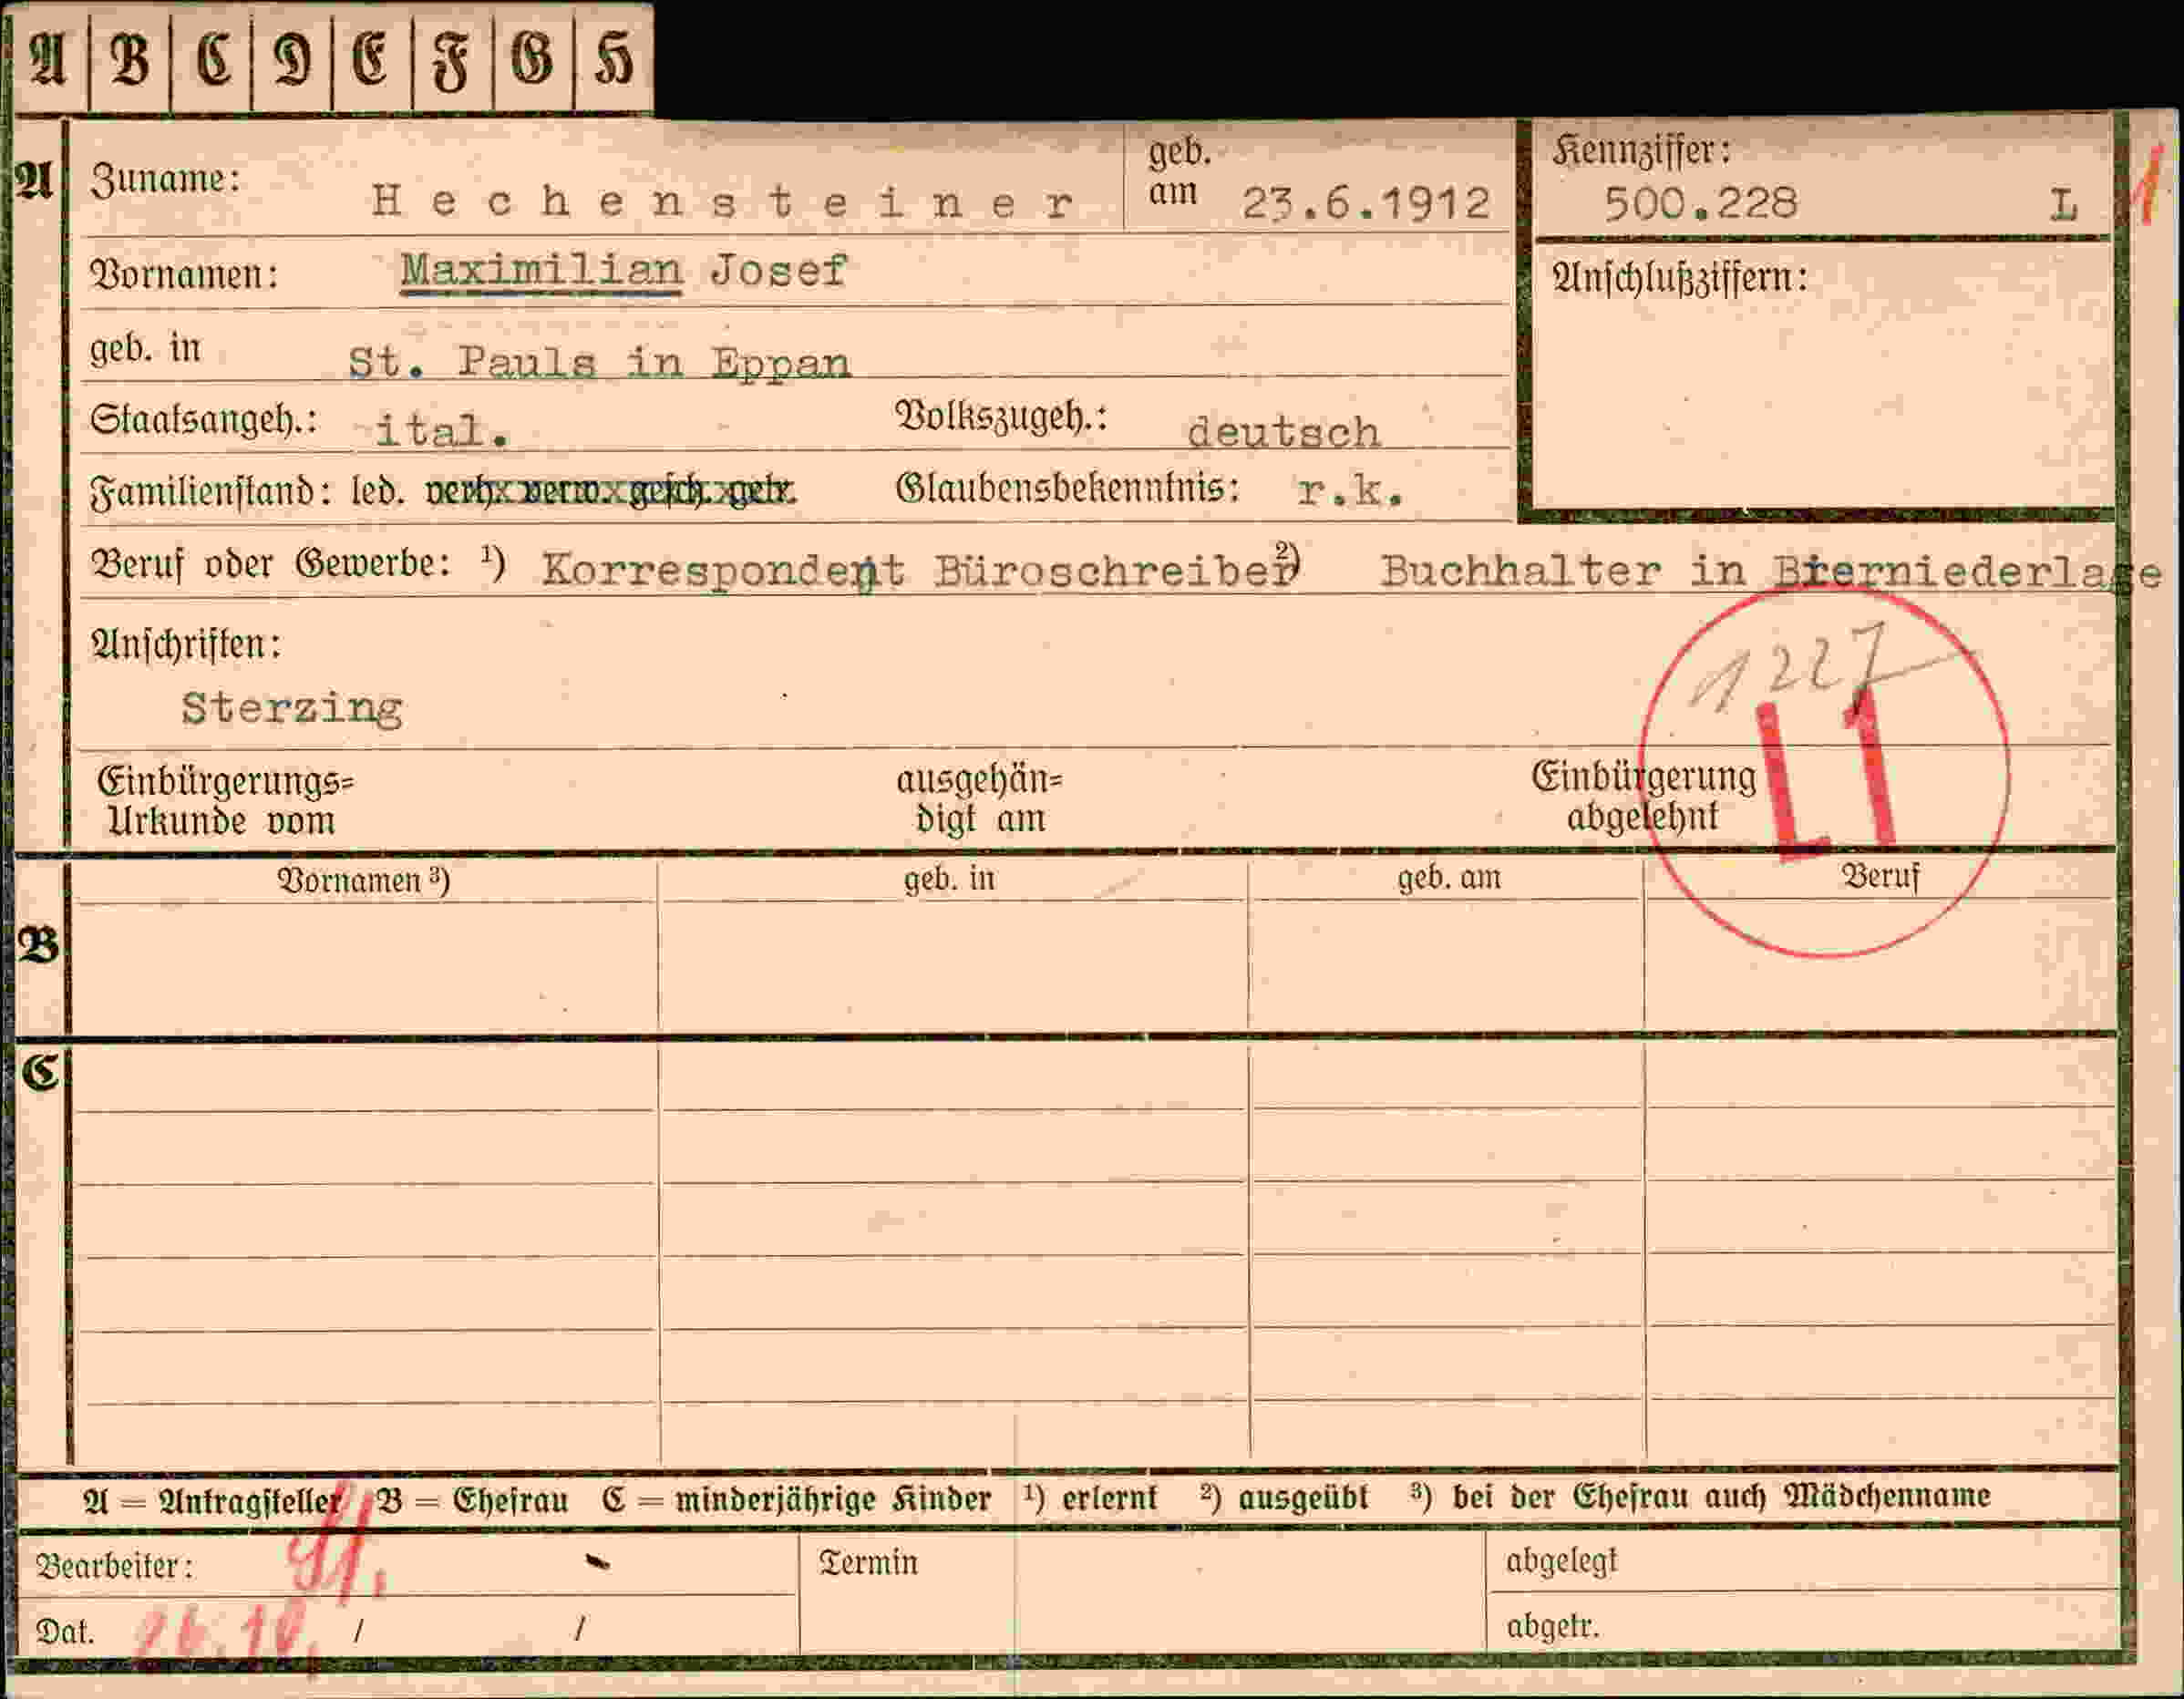 A B C D E F G H
A Zuname: Hechensteiner geb. am 23.6.1912 Kennziffer: 500.228 L 1
Vornamen: Maximilian Josef Anschlußziffern:
geb. in St. Pauls in Eppan
Staatsangeh.: ital. Volkszugeh.: deutsch
Familienstand: led. verh. verw. gesch. getr. Glaubensbekenntnis: r.k.
Beruf oder Gewerbe: ¹) Korrespondent Büroschreiber ²) Buchhalter in Bierniederlage
Anschriften:
1227
Sterzing
L1
Einbürgerungs= ausgehän= Einbürgerung
Urkunde vom digt am abgelehnt
Vornamen ³) geb. in geb. am Beruf
B
C
A = Antragsteller B = Ehefrau C = minderjährige Kinder ¹) erlernt ²) ausgeübt ³) bei der Ehefrau auch Mädchenname
Bearbeiter: Termin abgelegt
Dat. / / abgetr.